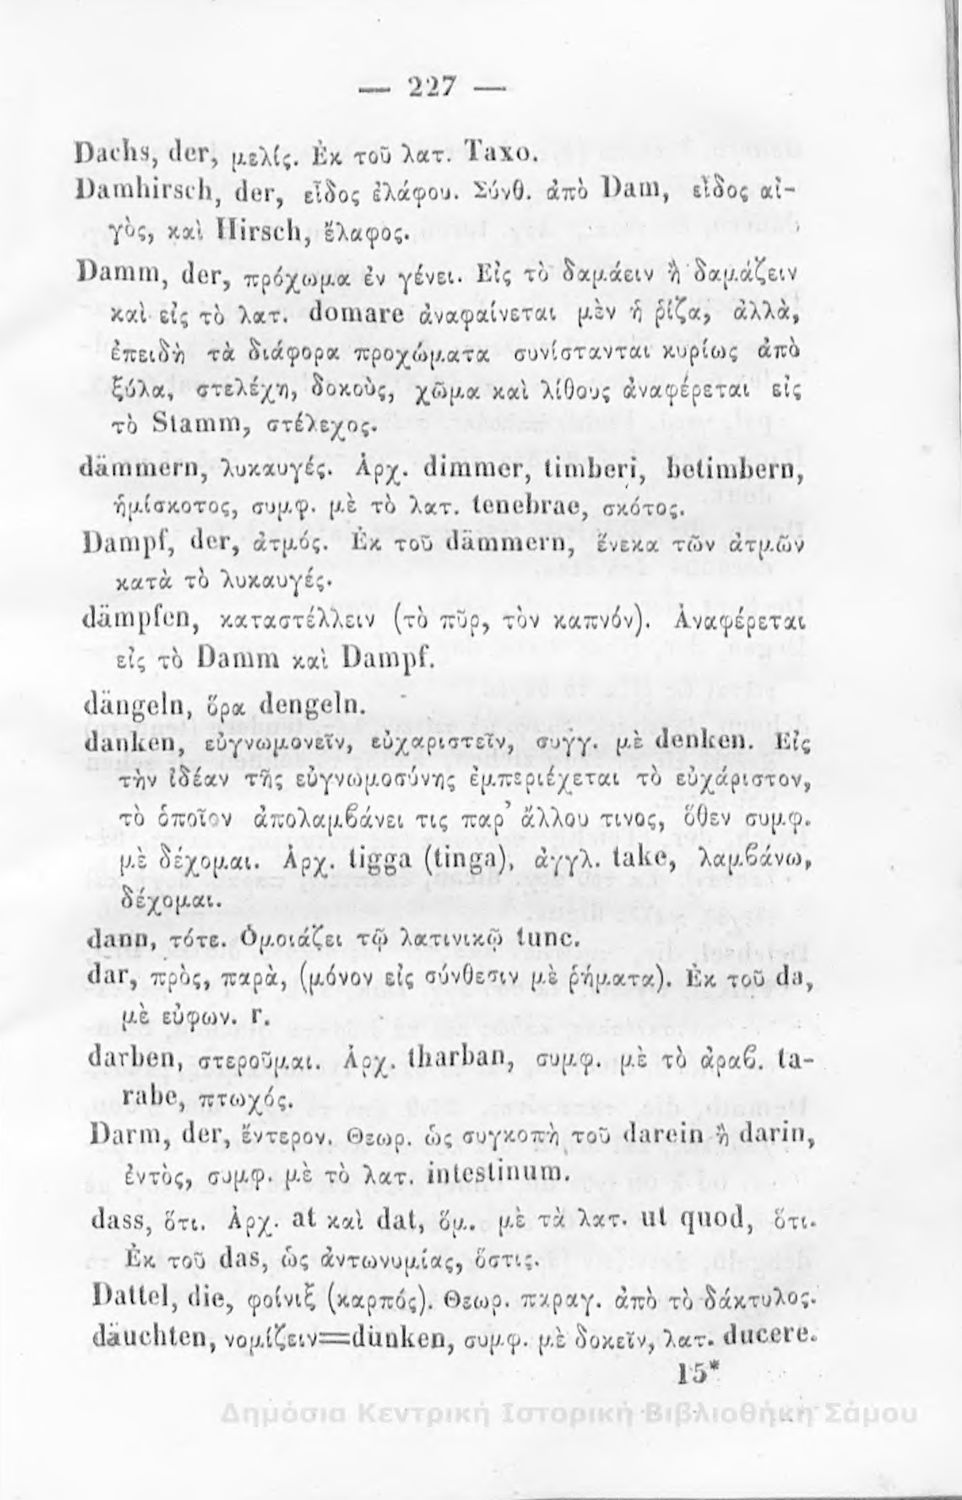 — 227 —
Dachs, der, μελίς. Ἐκ τοῦ λατ. Taxo.
Damhirsch, der, εἶδος ἐλάφου. Σύνθ. ἀπὸ Dam, εἶδος αἰ-
γὸς, καὶ Hirsch, ἔλαφος.
Damm, der, πρόχωμα ἐν γένει. Εἰς τὸ δαμάειν ἢ δαμάζειν
καὶ εἰς τὸ λατ. domare ἀναφαίνεται μὲν ἡ ῥίζα, ἀλλὰ,
ἐπειδὴ τὰ διάφορα προχώματα συνίστανται κυρίως ἀπὸ
ξύλα, στελέχη, δοκοὺς, χῶμα καὶ λίθους ἀναφέρεται εἰς
τὸ Stamm, στέλεχος.
dämmern, λυκαυγές. Ἀρχ. dimmer, timberi, betimbern,
ἡμίσκοτος, συμφ. μὲ τὸ λατ. tenebrae, σκότος.
Dampf, der, ἀτμός. Ἐκ τοῦ dämmern, ἕνεκα τῶν ἀτμῶν
κατὰ τὸ λυκαυγές.
dämpfen, καταστέλλειν (τὸ πῦρ, τὸν καπνόν). Ἀναφέρεται
εἰς τὸ Damm καὶ Dampf.
dängeln, ὅρα dengeln.
danken, εὐγνωμονεῖν, εὐχαριστεῖν, συγγ. μὲ denken. Εἰς
τὴν ἰδέαν τῆς εὐγνωμοσύνης ἐμπεριέχεται τὸ εὐχάριστον,
τὸ ὁποῖον ἀπολαμβάνει τις παρ’ ἄλλου τινος, ὅθεν συμφ.
μὲ δέχομαι. Ἀρχ. tigga (tinga), ἀγγλ. take, λαμβάνω,
δέχομαι.
dann, τότε. Ὁμοιάζει τῷ λατινικῷ tunc.
dar, πρὸς, παρὰ, (μόνον εἰς σύνθεσιν μὲ ῥήματα). Ἐκ τοῦ da,
μὲ εὐφων. r.
darben, στεροῦμαι. Ἀρχ. tharban, συμφ. μὲ τὸ ἀραβ. ta-
rabe, πτωχός.
Darm, der, ἔντερον. Θεωρ. ὡς συγκοπὴ τοῦ darein ἢ darin,
ἐντὸς, συμφ. μὲ τὸ λατ. intestinum.
dass, ὅτι. Ἀρχ. at καὶ dat, ὅμ. μὲ τὰ λατ. ut quod, ὅτι.
Ἐκ τοῦ das, ὡς ἀντωνυμίας, ὅστις.
Dattel, die, φοίνιξ (καρπός). Θεωρ. παραγ. ἀπὸ τὸ δάκτυλος.
däuchten, νομίζειν=dünken, συμφ. μὲ δοκεῖν, λατ. ducere.
15*
Δημόσια Κεντρική Ιστορική Βιβλιοθήκη Σάμου